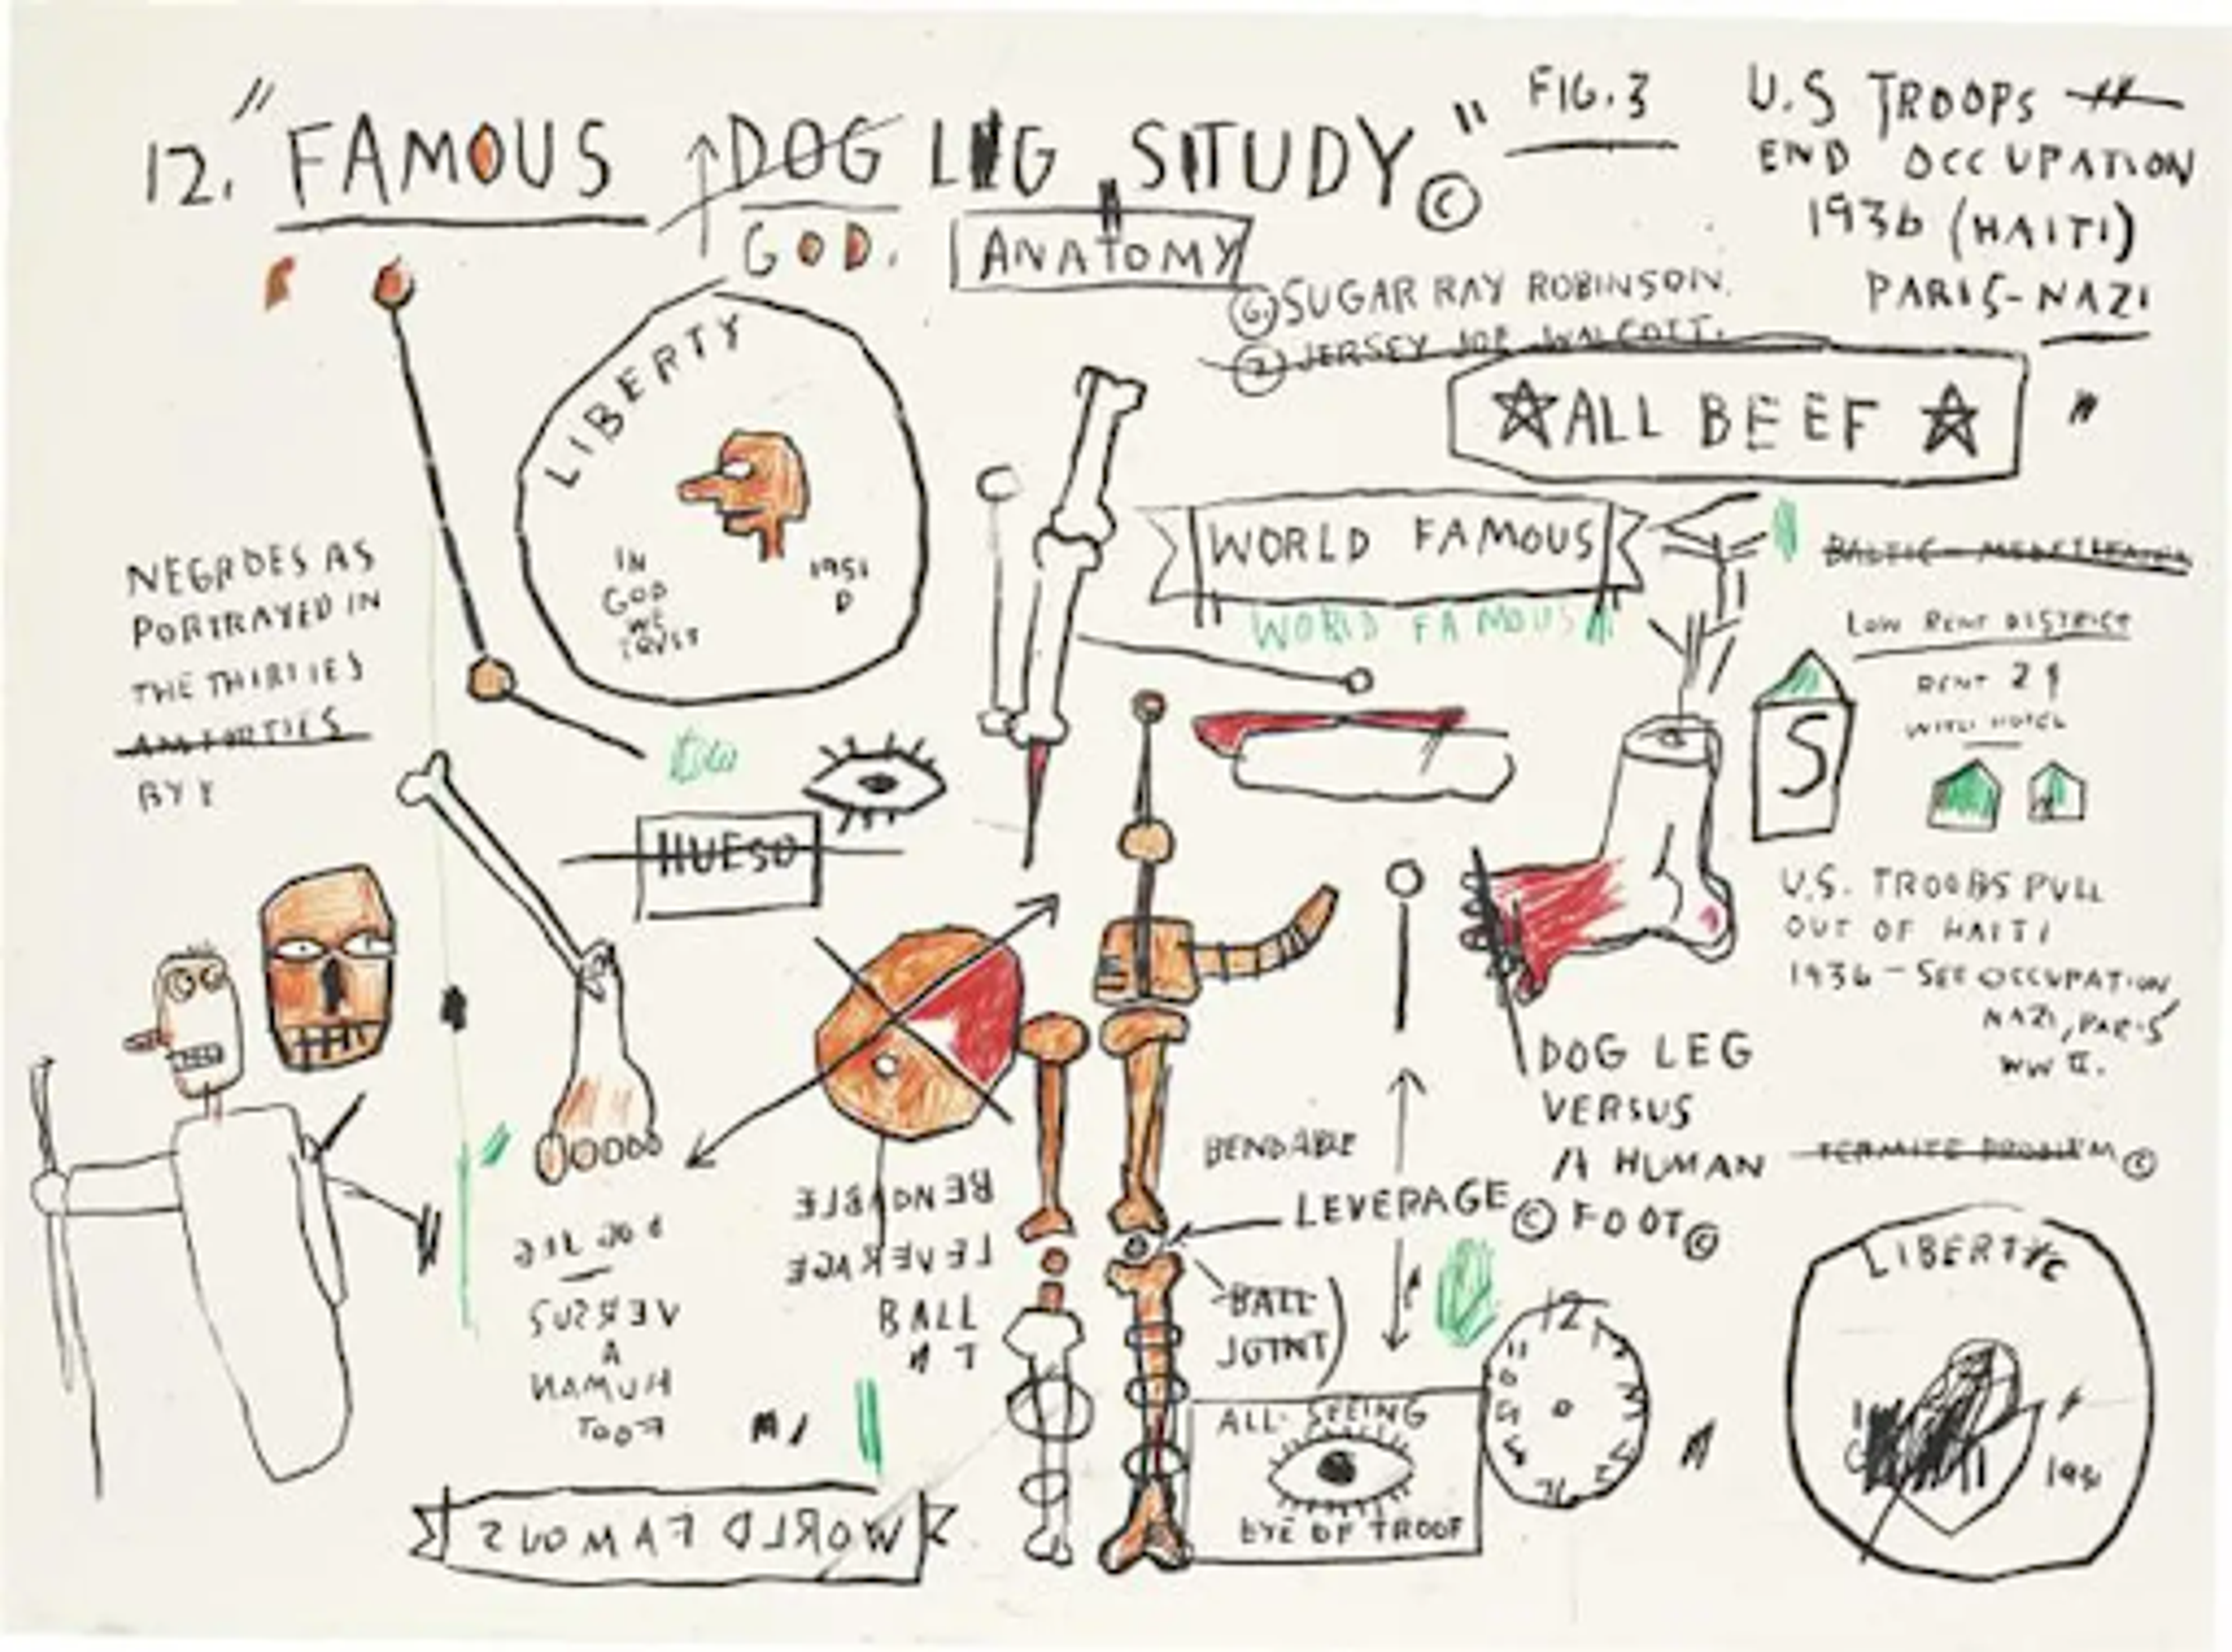 12. "FAMOUS DOG LEG STUDY" ©
GOD.
ANATOMY
FIG. 3
U.S TROOPS
END OCCUPATION
1936 (HAITI)
PARIS-NAZI
6. SUGAR RAY ROBINSON.
7. JERSEY JOE WALCOTT.
ALL BEEF
LIBERTY
IN
GOD
WE
TRUST
1951
D
WORLD FAMOUS
WORLD FAMOUS
BALTIC
LOW RENT DISTRICT
RENT 2
WITH HOTEL
S
NEGROES AS
PORTRAYED IN
THE THIRTIES
BY
HUESO
U.S. TROOBS PULL
OUT OF HAITI
1936 - SEE OCCUPATION
NAZI, PARIS
WW II.
DOG LEG
VERSUS
A HUMAN
FOOT ©
TERMITE PROBLEM ©
BENDABLE
LEVERAGE ©
BALL
JOINT
BENDABLE
LEVERAGE
BALL
DOG LEG
VERSUS
A
HUMAN
FOOT
ALL SEEING
EYE OF TROOF
12
11
LIBERTY
WORLD FAMOUS